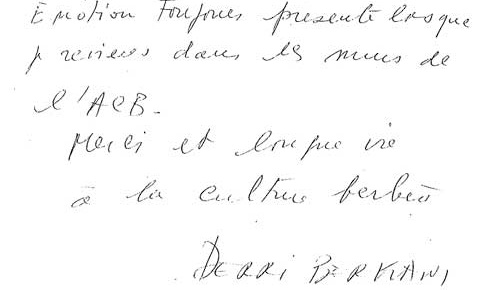 Emotion Toujours présente lorsque
je reviens dans les murs de
l'ACB.
Merci et longue vie
à la culture berbère
DERRI BERKANI